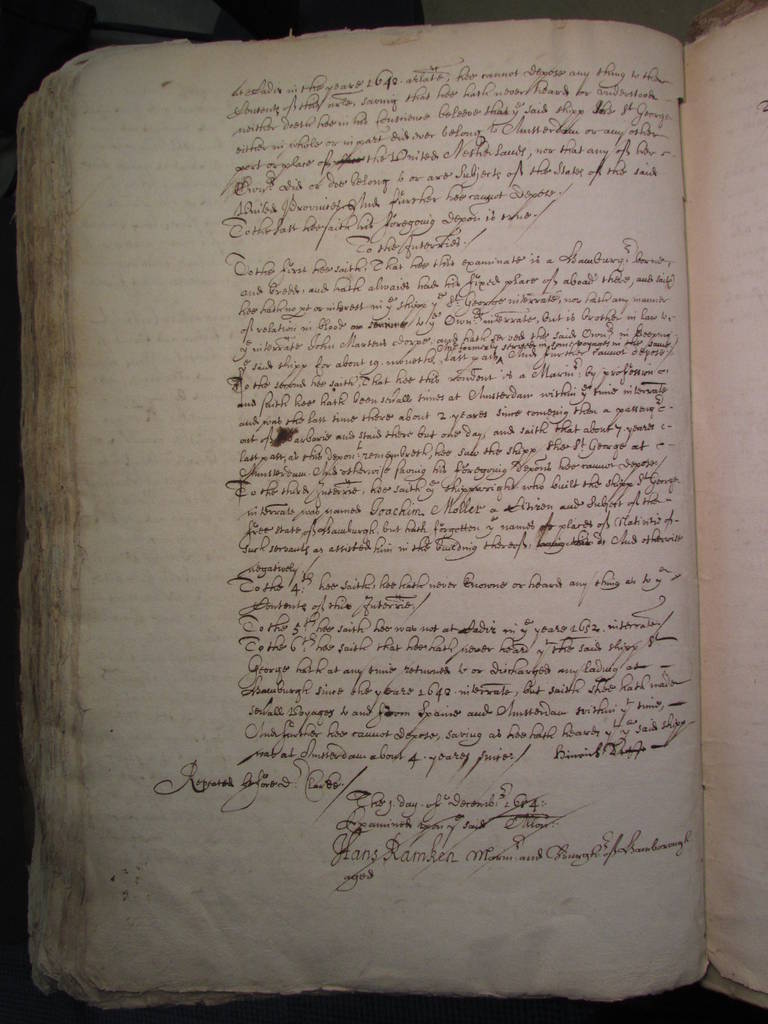 in the yeare 1640. arlate, hee cannot depose any thing to the
Contents of this arle, saving that hee hath never heard or understood
neither doeth hee in his Conscience beleeve that ye said shipp the St George
either in whole or in part did ever belong to Amsterdam or any other
port or place of the United Netherlands, nor that any of her
Ownrs did or doe belong to or are Subjects of the States of the said
United Provinces, And further hee cannot depose./
To the last hee saith his foregoing depon is true./
To the Interries./
To the first hee saith, That hee this examinate is a Hamburgr borne
and breed, and hath alwaies had his fixed place of aboad there, and saith
hee hath no pt or interest in ye shipp ye St. George interrate, nor hath any manner
of relation in blood to ye Ownrs interrate, but is brother in law to
ye interrate John Martens and hath served the said Ownrs in keeping
ye said shipp for about 19. moneths last past, And further cannot depose/
hee formerly served in some voyages in the same
To the second hee saith, That hee this rendent is a Marinr by profession
and saith hee hath been severall times at Amsterdam within ye time interrate
and was the last time there about 2 yeares since comeing then a passengr
out of Barbarie and staid there but one day, and saith that about 7. yeares
last past, as this depont remembreth, hee saw the shipp the St George at
Amsterdam. And otherwise saving his foregoing deposn hee cannot depose/
To the third Interrie, hee saith ye shippwright who built the shipp St George
interrate was named Joachim Moller a Citizen and Subject of the
free state of Hamburgh, but hath forgotten ye names or places of Nativitie of
such servants as assisted him in the building thereof, And otherwise
negatively/
To the 4th hee saith, hee hath never knowne or heard any thing as to ye
Contents of this Interrie/
To the 5th hee saith hee was not at Cadiz in ye yeare 1652. interrate/
To the 6th hee saith that hee hath never heard yt the said shipp St
George hath at any time returned to or discharged any lading at
Hamburgh since the yeare 1640. interrate, but saith shee hath made
severall Voyages to and from Spaine and Amsterdam within yt time,
And further hee cannot depose, saving as hee hath heard yt ye said shipp
was at Amsterdam about 4. yeares since/ Hinrich
Repeated before dr Clarke./
The 1. day of Decembr 1654:
Examined upon ye said Allon:
Hans Ramken Marinr and Burghr of Hamborough
aged